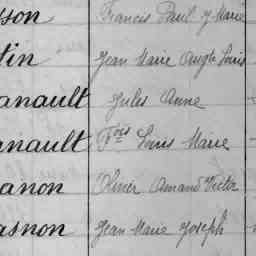 sson Francis Paul J Marie
tin Jean Marie Augte Louis
anault Jules Anne
anault Fois Louis Marie
anon Olivier Amand Victor
asnon Jean Marie Joseph